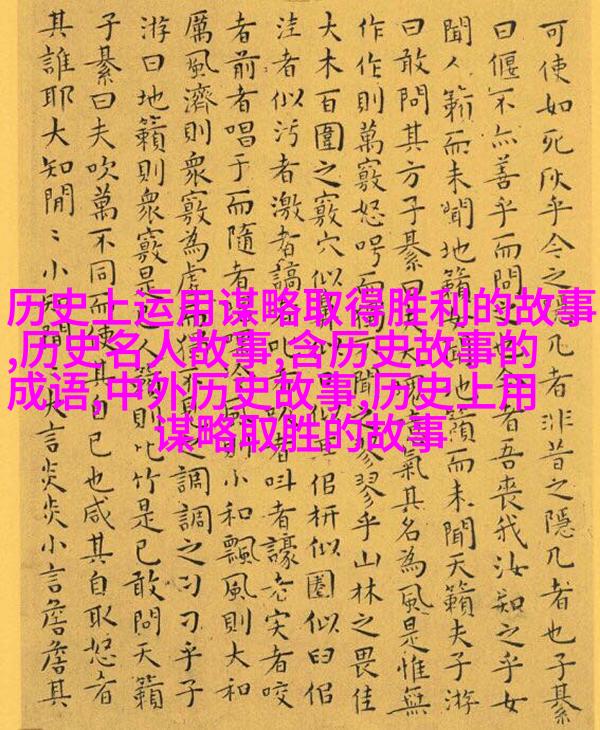 历史上运用谋略取得胜利的故事
,历史名人故事,含历史故事的
成语,中外历史故事,历史上用
谋略取胜的故事
可使如死灰乎今之几者非昔之隱几者也子綦
曰偃不亦善乎而問者吾喪我汝知之乎女
聞人籟而未聞地籟女聞地籟而未聞天籟夫子游
曰敢問其方子綦曰大氣其名為風是惟無
作作則萬竅怒呺而聞之翏翏乎山林之畏佳
大木百圍之竅穴似似枅似圈似臼似
洼者似污者激者謞叱者者叫者譹者宎者咬
者前者唱于而隨者風則小和飄風則大和
厲風濟則眾竅為虛而獨不見之調調之刁刁乎子
游曰地籟則眾竅是已人籟則比竹是已敢問天籟
子綦曰夫吹萬不同而使其自已也咸其自取怒者
其誰耶大知閒〻小知大言炎炎小言詹詹其